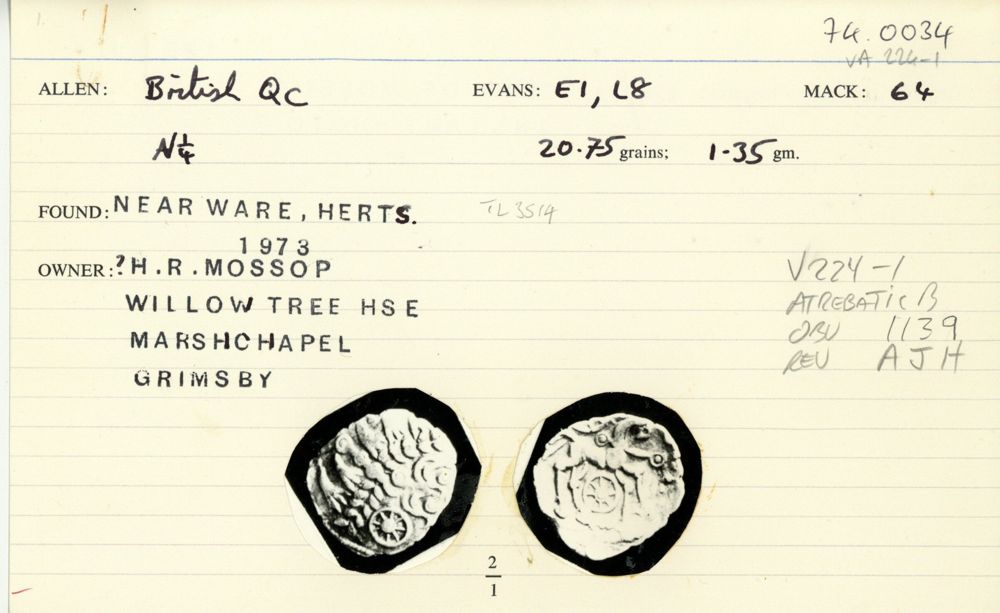 74.0034
VA 224-1
ALLEN: British QC EVANS: E1, L8 MACK: 64
N¼ 20.75 grains; 1.35 gm.
FOUND: NEAR WARE, HERTS. TL 3514
1973
OWNER: ?H.R.MOSSOP
WILLOW TREE HSE
MARSHCHAPEL
GRIMSBY
V224-1
ATREBATIC B
OBV 1139
REV AJH
2
1